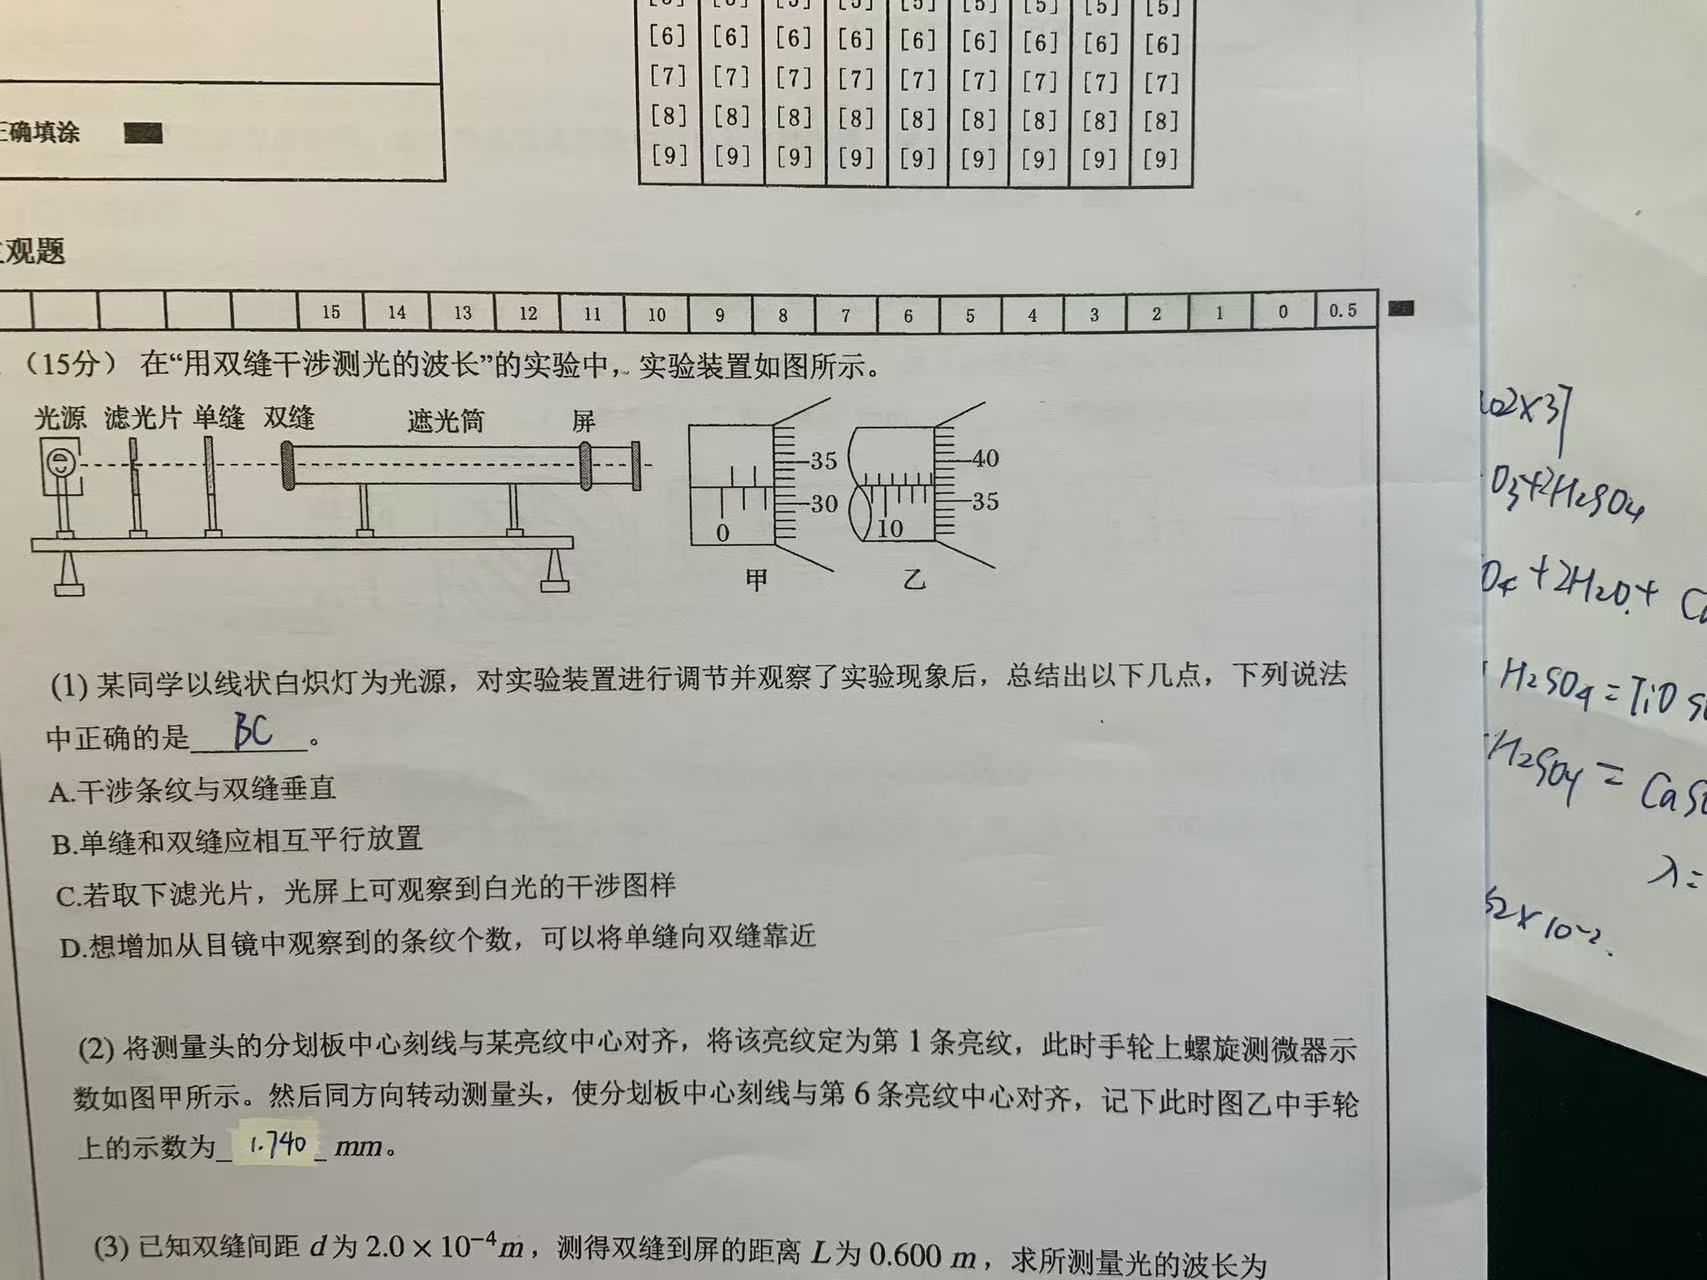 [6] [6] [6] [6] [6] [6] [6] [6] [6]
[7] [7] [7] [7] [7] [7] [7] [7] [7]
[8] [8] [8] [8] [8] [8] [8] [8] [8]
[9] [9] [9] [9] [9] [9] [9] [9] [9]
正确填涂
主观题
15 14 13 12 11 10 9 8 7 6 5 4 3 2 1 0 0.5
（15分） 在“用双缝干涉测光的波长”的实验中，实验装置如图所示。
光源 滤光片 单缝 双缝 遮光筒 屏
35 30 0 甲
40 35 10 乙
(1) 某同学以线状白炽灯为光源，对实验装置进行调节并观察了实验现象后，总结出以下几点，下列说法
中正确的是 BC 。
A.干涉条纹与双缝垂直
B.单缝和双缝应相互平行放置
C.若取下滤光片，光屏上可观察到白光的干涉图样
D.想增加从目镜中观察到的条纹个数，可以将单缝向双缝靠近
(2) 将测量头的分划板中心刻线与某亮纹中心对齐，将该亮纹定为第 1 条亮纹，此时手轮上螺旋测微器示
数如图甲所示。然后同方向转动测量头，使分划板中心刻线与第 6 条亮纹中心对齐，记下此时图乙中手轮
上的示数为 1.740 mm。
(3) 已知双缝间距 d 为 2.0 × 10⁻⁴ m，测得双缝到屏的距离 L 为 0.600 m，求所测量光的波长为
O₃+2H₂SO₄
+2H₂O+
H₂SO₄=TiO
H₂SO₄=
λ=
×10⁻²